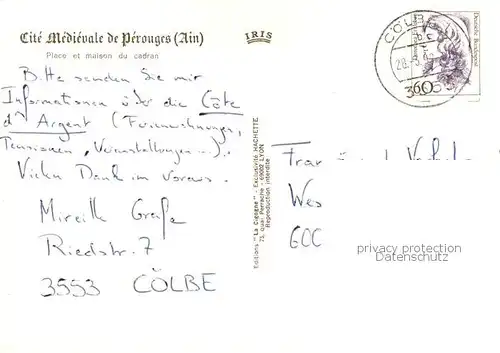 Cité Médiévale de Pérouges (Ain)
Place et maison du cadran
IRIS
Bitte senden Sie mir
Informationen über die Côte
d'Argent (Ferienwohnungen,
Pensionen, Veranstaltungen...).
Vielen Dank im voraus.
Mireille
Riedstr. 7
3553 CÖLBE
Editions "La Cigogne" - Exclusivité HACHETTE
75, quai Perrache - 69002 LYON
Reproduction interdite
CÖLBE
Deutsche Bundespost
Wes
privacy protection
Datenschutz